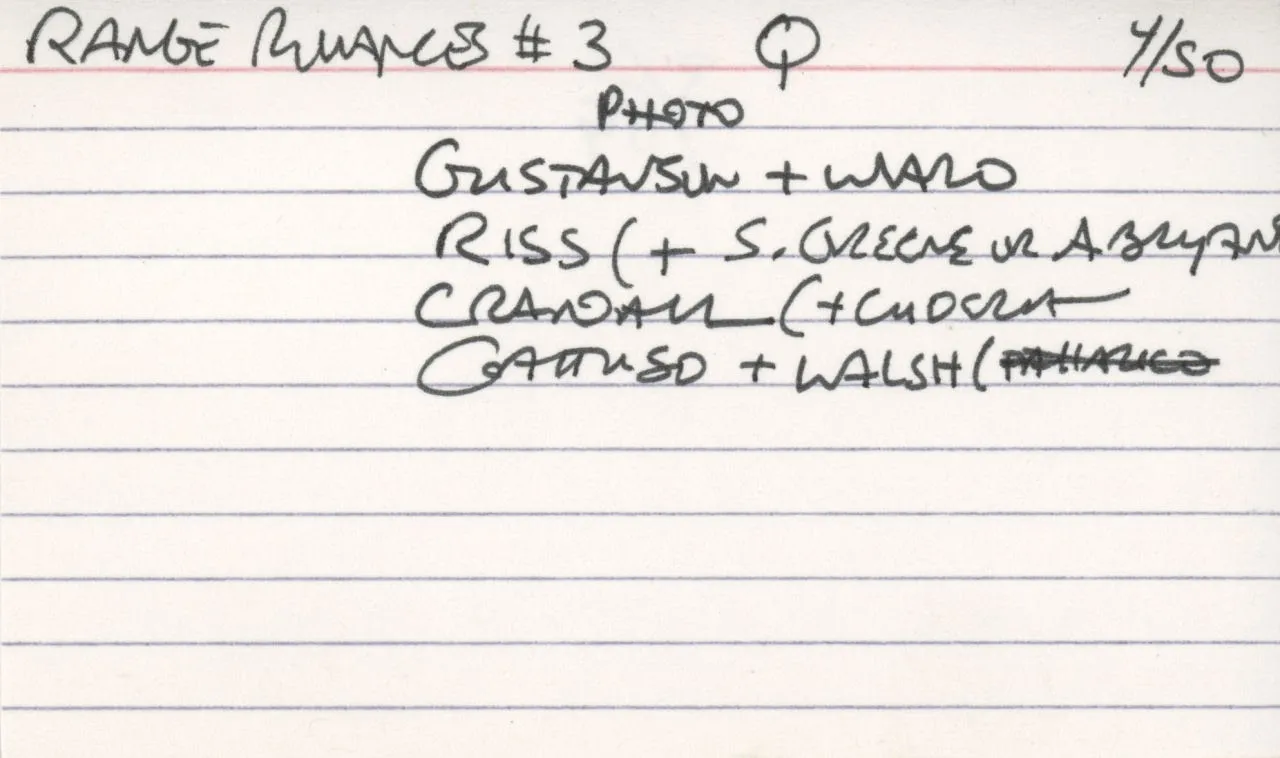 RANGE ROMANCES # 3 Q 4/50
PHOTO
GUSTAVSON + WARD
RISS (+ S. GREENE OR A BRYAN
CRANDALL (+ CUDERA
GATTUSO + WALSH (